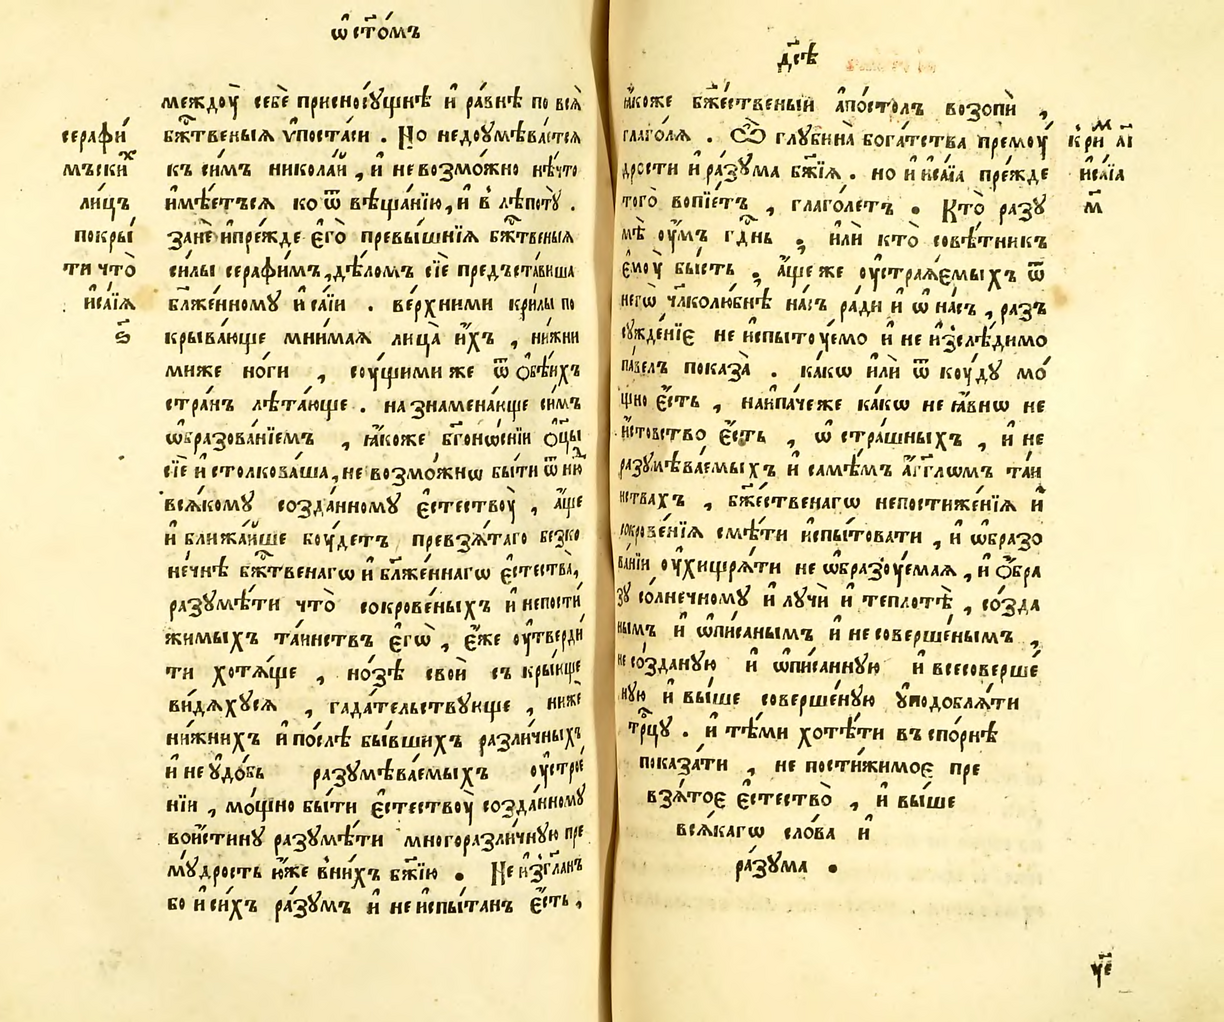 ѡ҆ ст҃о́мъ
междоу̀ себѐ присносу́щнѣ и҆ ра́внѣ по всѧ̀
бж҃твеныѧ ѵ҆поста́си . Но недоумѣва́етсѧ
къ си́мъ никола́й , и҆ невозмо́жно нѣ́что
и҆мѣ́етъсѧ ко ѿ вѣща́нїю , и҆ в̾ лѣ́потꙋ .
занѐ и҆пре́жде є҆го̀ превы́шнїѧ бж҃твеныѧ
си́лы серафи́мъ , дѣ́ломъ сїѐ предъста́виша
бл҃же́нномꙋ и҆са́їи . ве́рхними кри́лы по
крыва́юще мни́маѧ лица̀ и҆́хъ , ни́жни
миже но́ги , соу́щими же ѿ ѻ҆бѣ́ихъ
стра́нъ лѣта́юще . на знамена́нще си́мъ
ѡ҆бразова́нїемъ , ꙗ҆́коже бг҃оно́снїи ѻ҆ц҃ы̀
сїѐ и҆ столкова́ша , не возмо́жнѡ бы́ти ѿ ню
всѧ́комꙋ созда́нномꙋ є҆стествоу̀ , а҆́ще
и҆ ближа́йше боу́детъ превзѧ́таго безко
не́чнѣ бж҃твенагѡ и҆ бл҃же́ннагѡ є҆стества̀ ,
разꙋмѣ́ти что̀ сокрове́ныхъ и҆ непости
жи́мыхъ та́инствъ є҆гѡ̀ , є҆́же оу҆тверди
ти хотѧ́ще , но́зѣ свои̑ съ кры́юще
ви́дѧхꙋсѧ , гада́тельствꙋюще , нижѐ
ни́жнихъ и҆ по́слѣ бы́вшихъ разли́чныхъ
и҆ не ꙋ҆до́бь разꙋмѣва́емыхъ оу҆строе
нїи , мо́щно бы́ти є҆стествоу̀ созда́нномꙋ
вои́стинꙋ разꙋмѣ́ти многоразли́чнꙋю пре
мꙋ́дрость ю҆́же в̾ни́хъ бж҃їю . Не и҆зг҃ла́нъ
бо и҆ си́хъ ра́зꙋмъ и҆ не и҆спы́танъ є҆́сть ,
серафи́
мъски́х
лицъ
покры́
ти что̀
и҆са́їѧ
ѕ҃
дс҃ѣ
ꙗ҆́коже бж҃е́ственый а҆по́столъ возопѝ ,
глаго́лѧ . Ѽ глꙋбина̀ бога́тства премоу́
дрости и҆ ра́зꙋма бж҃їѧ . но и҆ и҆са́їа пре́жде
того̀ вопїе́тъ , глаго́летъ . Кто̀ разꙋ
мѣ̀ оу҆́мъ гд҃нь , и҆лѝ кто̀ совѣ́тникъ
є҆моу̀ бы́сть . а҆́ще же оу҆странѧ́емыхъ ѿ
негѡ̀ чл҃колю́бнѣ на́съ ра́ди и҆ ѡ҆ на́съ , разъ
сꙋжде́нїе не и҆спытоу́емо и҆ не и҆зслѣ́димо
па́велъ показа̀ . ка́кѡ и҆лѝ ѿ коу́дꙋ мо́
щно є҆́сть , наипа́чеже ка́кѡ не ꙗ҆́внѡ не
и҆́стовство є҆́сть , ѡ҆ стра́шныхъ , и҆ не
разꙋмѣва́емыхъ и҆ самѣ́мъ а҆́гг҃лѡмъ та́и
нствахъ , бж҃е́ственагѡ непостиже́нїѧ и҆
сокрове́нїѧ смѣ́ти и҆спы́товати , и҆ ѡ҆бразо
ва́нїи оу҆хищрѧ́ти не ѡ҆бразоу́емаѧ , и҆ ѻ҆бра
зꙋ со́лнечномꙋ и҆ лꙋчѝ и҆ теплотѣ̀ , созда́
нымъ и҆ ѡ҆пи́санымъ и҆ не соверше́нымъ ,
не со́зданꙋю и҆ ѡ҆пи́саннꙋю и҆ всесоверше́
нꙋю и҆ вы́ше соверше́нꙋю ꙋ҆подоблѧ́ти
трⷪ҇цꙋ . и҆ тѣ́ми хотѣ́ти въ спо́рнѣ
показа́ти , не постижи́мое пре
взѧ́тое є҆стество̀ , и҆ вы́ше
всѧ́кагѡ сло́ва и҆
ра́зꙋма .
и҆са́їа
м҃